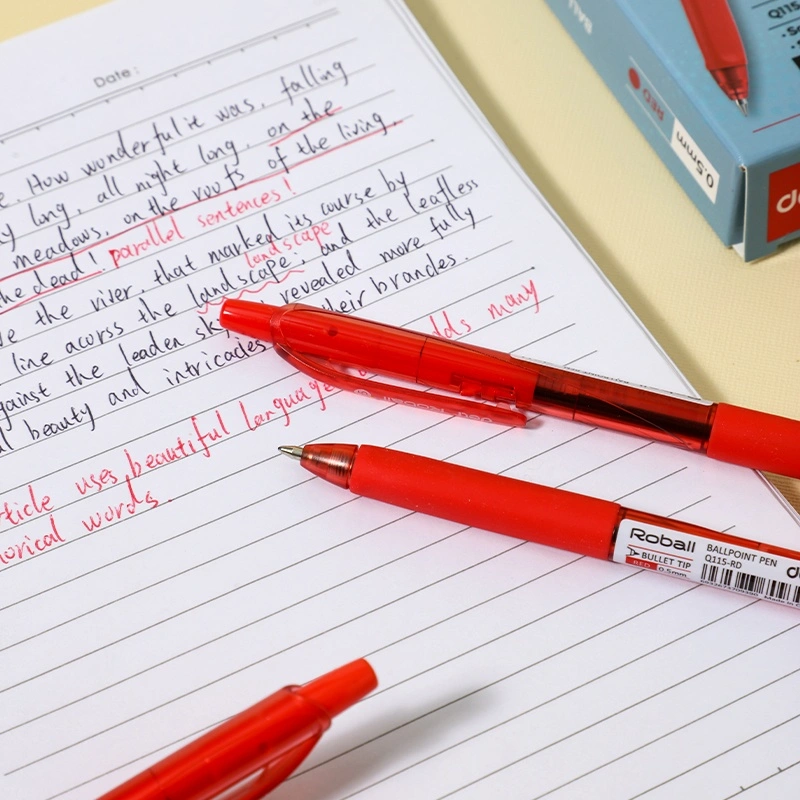 Date:
e. How wonderful it was, falling
long, all night long, on the
meadows, on the roofs of the living,
the dead! parallel sentences!
the river, that marked its course by
landscape
line acorss the landscape; and the leafless
against the leaden sk revealed more fully
beauty and intricades their brancles.
dds many
ticle uses beautiful language
orical words.
Roball
BALLPOINT PEN
Q115-RD
BULLET TIP
RED 0.5mm
de
Q115
RED
0.5mm
de